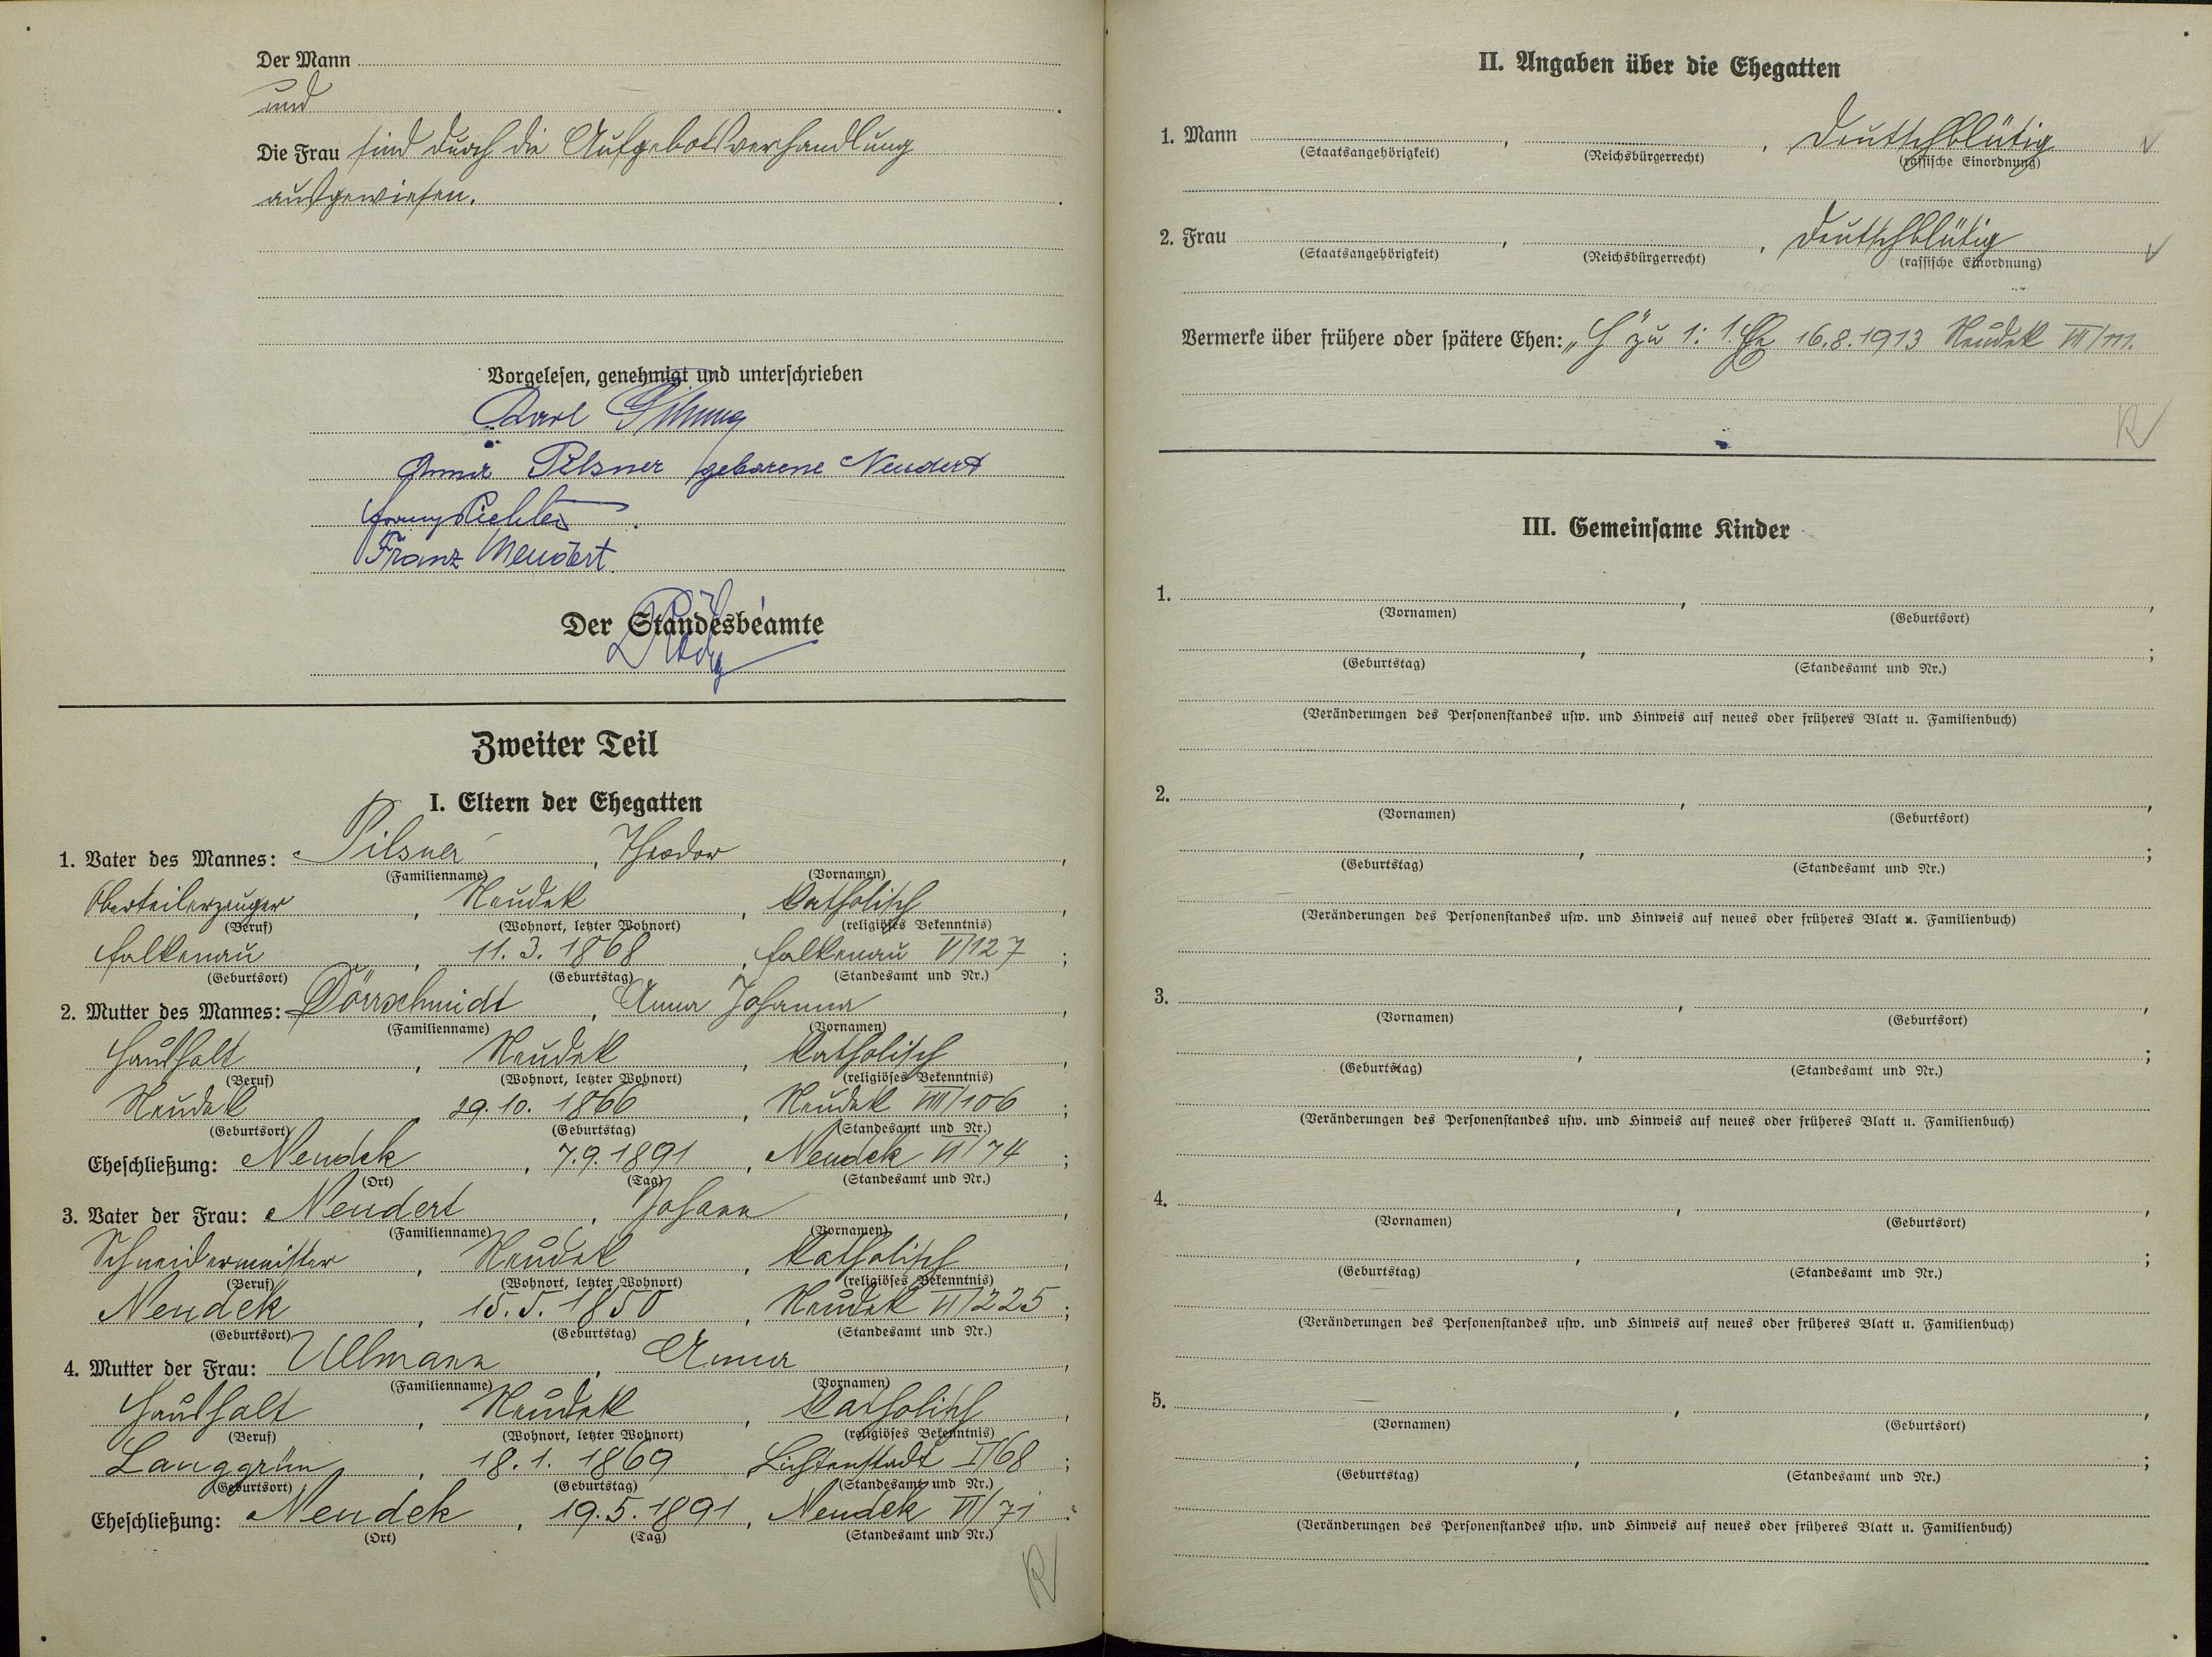 Der Mann
und
Die Frau sind durch die Aufgebotsverhandlung
ausgewiesen.
Vorgelesen, genehmigt und unterschrieben
Karl
Anna Pilsner geborene Neudert
Franz Neudert
Der Standesbeamte
Zweiter Teil
I. Eltern der Ehegatten
1. Vater des Mannes: Pilsner, Theodor,
(Familienname) (Vornamen)
Oberteilerzeuger, Neudek, katholisch,
(Beruf) (Wohnort, letzter Wohnort) (religiöses Bekenntnis)
Falkenau, 11.3.1868, Falkenau V/127;
(Geburtsort) (Geburtstag) (Standesamt und Nr.)
2. Mutter des Mannes: Dörrschmidt, Anna Johanna,
(Familienname) (Vornamen)
Haushalt, Neudek, katholisch,
(Beruf) (Wohnort, letzter Wohnort) (religiöses Bekenntnis)
Neudek, 29.10.1866, Neudek VIII/106;
(Geburtsort) (Geburtstag) (Standesamt und Nr.)
Eheschließung: Neudek, 7.9.1891, Neudek VI/74;
(Ort) (Tag) (Standesamt und Nr.)
3. Vater der Frau: Neudert, Johann,
(Familienname) (Vornamen)
Schneidermeister, Neudek, katholisch,
(Beruf) (Wohnort, letzter Wohnort) (religiöses Bekenntnis)
Neudek, 15.5.1850, Neudek VI/225;
(Geburtsort) (Geburtstag) (Standesamt und Nr.)
4. Mutter der Frau: Ullmann, Anna,
(Familienname) (Vornamen)
Haushalt, Neudek, katholisch,
(Beruf) (Wohnort, letzter Wohnort) (religiöses Bekenntnis)
Langgrün, 18.1.1869, Lichtenstadt I/68;
(Geburtsort) (Geburtstag) (Standesamt und Nr.)
Eheschließung: Neudek, 19.5.1891, Neudek VI/71.
(Ort) (Tag) (Standesamt und Nr.)
R
II. Angaben über die Ehegatten
1. Mann , , deutschblütig
(Staatsangehörigkeit) (Reichsbürgerrecht) (rassische Einordnung)
2. Frau , , deutschblütig
(Staatsangehörigkeit) (Reichsbürgerrecht) (rassische Einordnung)
Vermerke über frühere oder spätere Ehen: "H" zu 1: 1. Ehe 16.8.1913 Neudek VII/111.
R
III. Gemeinsame Kinder
1. , ,
(Vornamen) (Geburtsort)
, ;
(Geburtstag) (Standesamt und Nr.)
(Veränderungen des Personenstandes usw. und Hinweis auf neues oder früheres Blatt u. Familienbuch)
2. , ,
(Vornamen) (Geburtsort)
, ;
(Geburtstag) (Standesamt und Nr.)
(Veränderungen des Personenstandes usw. und Hinweis auf neues oder früheres Blatt u. Familienbuch)
3. , ,
(Vornamen) (Geburtsort)
, ;
(Geburtstag) (Standesamt und Nr.)
(Veränderungen des Personenstandes usw. und Hinweis auf neues oder früheres Blatt u. Familienbuch)
4. , ,
(Vornamen) (Geburtsort)
, ;
(Geburtstag) (Standesamt und Nr.)
(Veränderungen des Personenstandes usw. und Hinweis auf neues oder früheres Blatt u. Familienbuch)
5. , ,
(Vornamen) (Geburtsort)
, ;
(Geburtstag) (Standesamt und Nr.)
(Veränderungen des Personenstandes usw. und Hinweis auf neues oder früheres Blatt u. Familienbuch)